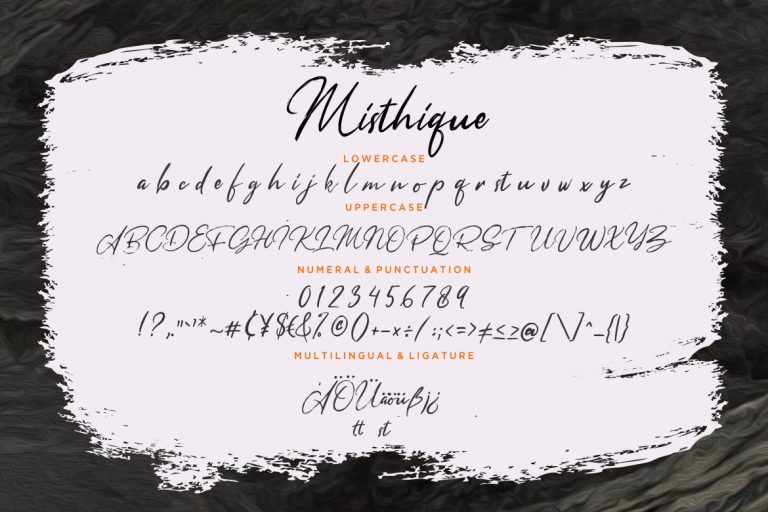 Misthique
LOWERCASE
a b c d e f g h i j k l m n o p q r s t u v w x y z
UPPERCASE
A B C D E F G H I K L M N O P Q R S T U V W X Y Z
NUMERAL & PUNCTUATION
0 1 2 3 4 5 6 7 8 9
! ? , . " " ` ' * ~ # ¢ ¥ $ € & % © ( ) + − × ÷ / : ; < = > ≠ ≤ ≥ @ [ \ ] ^ _ { | }
MULTILINGUAL & LIGATURE
Ä Ö Ü ä ö ü ß ¡ ¿
tt st